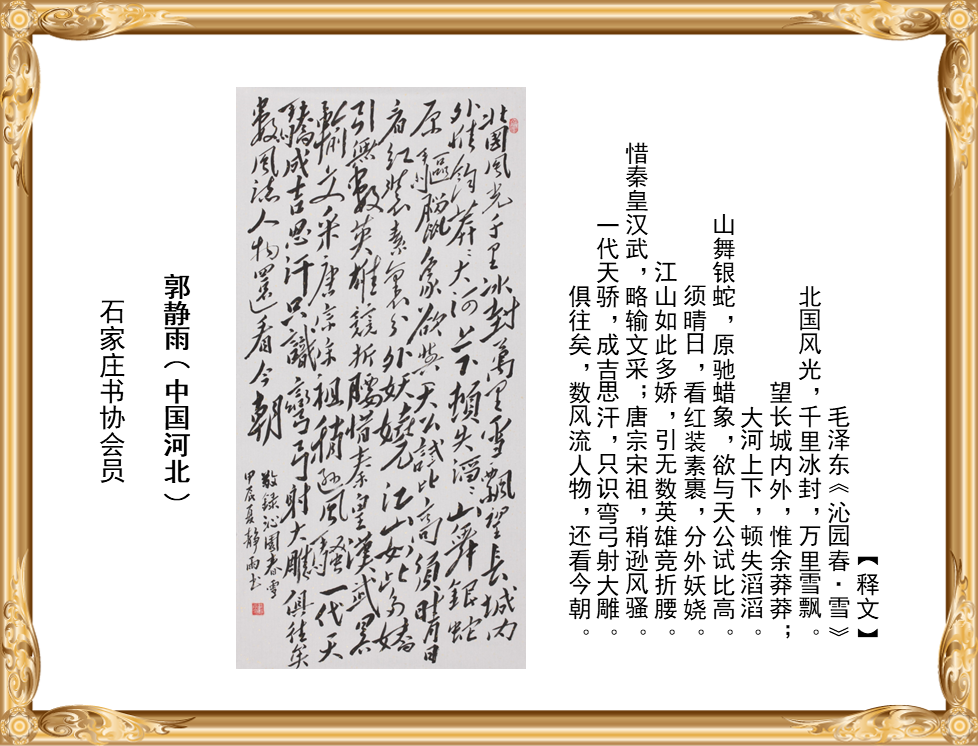 【释文】
毛泽东《沁园春·雪》
北国风光，千里冰封，万里雪飘。
望长城内外，惟余莽莽；
大河上下，顿失滔滔。
山舞银蛇，原驰蜡象，欲与天公试比高。
须晴日，看红装素裹，分外妖娆。
江山如此多娇，引无数英雄竞折腰。
惜秦皇汉武，略输文采；唐宗宋祖，稍逊风骚。
一代天骄，成吉思汗，只识弯弓射大雕。
俱往矣，数风流人物，还看今朝。
北國風光千里冰封萬里雪飄望長城内
外惟餘莽ミ大河上下頓失滔ミ山舞銀蛇
原驅臘象欲與天公試比高須晴日
看紅裝素裹分外妖嬈江山如此多嬌
引無數英雄競折腰惜秦皇漢武略
輸文采唐宗宋祖稍遜風騷一代天
驕成吉思汗只識彎弓射大雕俱往矣
數風流人物還看今朝
敬録沁園春雪
甲辰夏静雨书
郭静雨（中国河北）
石家庄书协会员